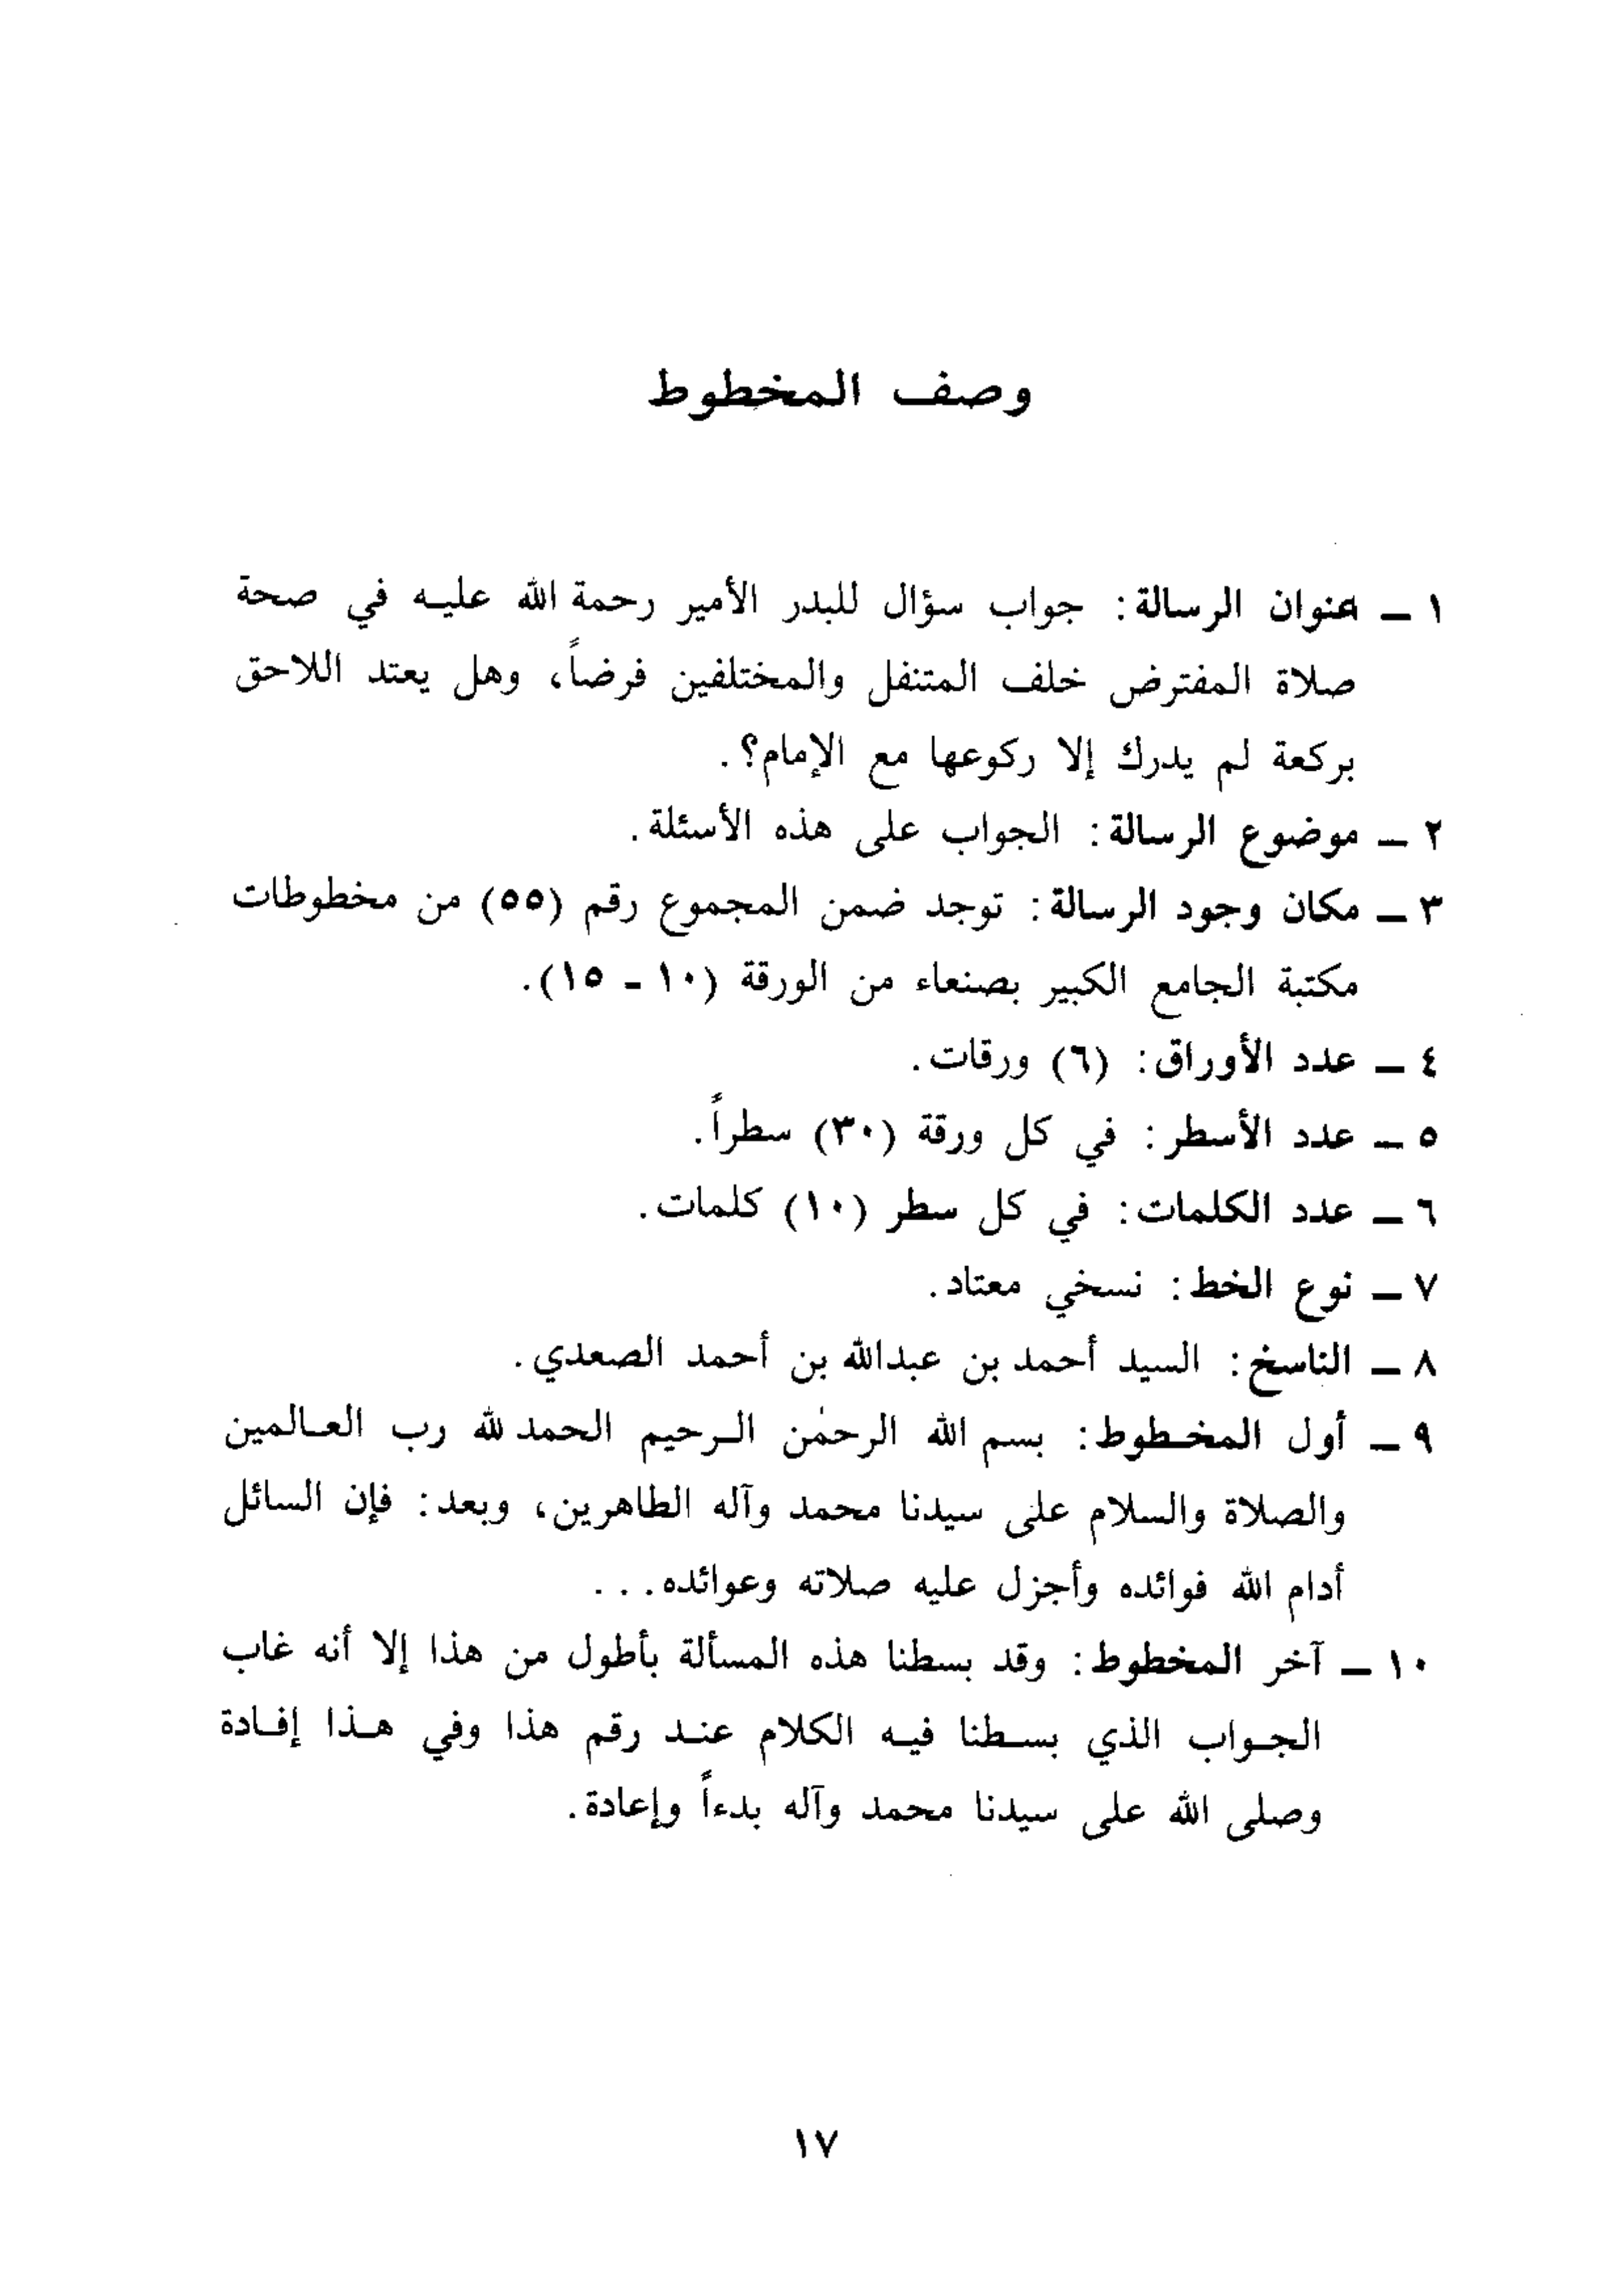 وصف المخطوط
١ – عنوان الرسالة: جواب سؤال للبدر الأمير رحمة الله عليه في صحة
صلاة المفترض خلف المتنفل والمختلفين فرضاً، وهل يعتد اللاحق
بركعة لم يدرك إلا ركوعها مع الإمام؟.
٢ – موضوع الرسالة: الجواب على هذه الأسئلة.
٣ – مكان وجود الرسالة: توجد ضمن المجموع رقم (٥٥) من مخطوطات
مكتبة الجامع الكبير بصنعاء من الورقة (١٠ - ١٥).
٤ – عدد الأوراق: (٦) ورقات.
٥ – عدد الأسطر: في كل ورقة (٣٠) سطراً.
٦ – عدد الكلمات: في كل سطر (١٠) كلمات.
٧ – نوع الخط: نسخي معتاد.
٨ – الناسخ: السيد أحمد بن عبدالله بن أحمد الصعدي.
٩ – أول المخطوط: بسم الله الرحمٰن الرحيم الحمد لله رب العالمين
والصلاة والسلام على سيدنا محمد وآله الطاهرين، وبعد: فإن السائل
أدام الله فوائده وأجزل عليه صلاته وعوائده...
١٠ – آخر المخطوط: وقد بسطنا هذه المسألة بأطول من هذا إلا أنه غاب
الجواب الذي بسطنا فيه الكلام عند رقم هذا وفي هذا إفادة
وصلى الله على سيدنا محمد وآله بدءاً وإعادة.
١٧